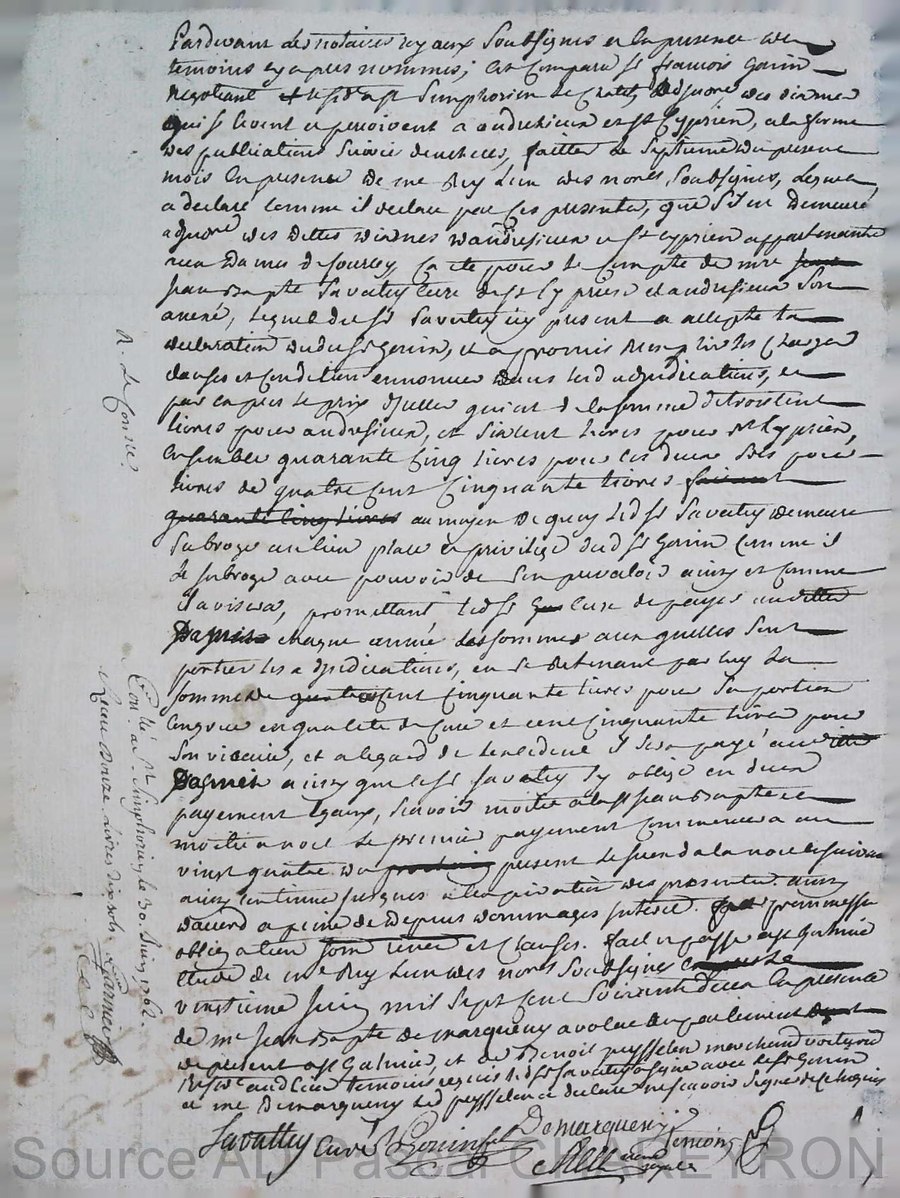 Pardevant des notaires royaux Soubsignes et En presence des
temoins cy apres nommes; est Comparu Sr francois Gonin
Negotiant St Simphorien Adjudre des dixmes
qui se levent et percoivent a andrezieux et St Cyprien, a la forme
des publications Suivie d'encheres, faittes le Septieme du present
mois En presence De me Rey L'un des nores Soubsignes, Lequel
a declaré comme il declare par Ces presentes, que S'il est Demeuré
adjudre des dittes dixmes d'andresieux et St Cyprien appartenante
aux Dames de Jourcey, Ca ete pour le Compte de mre
Jean Bapte Savattey Cure de St Cyprien et andresieux Son
annexe, Lequel dit Sr Savattey icy present a accepté la
declaration dudit Sr Gonin, et a promis Remplir les Charges
clauses et Condition ennoncées Dans lesd adjudications, et
payer le prix d'icelles qui est de la somme de trois Cent
livres pour andresieux, et Six Cent livres pour St Cyprien,
Ensemble quarante Cinq livres pour les deux Sols pour
livres de quatre Cent Cinquante livres
quarante Cinq livres au moyen De quoy led Sr Savattey demeure
Subrogé au lieu place et privilege dud Sr Gonin Comme il
le subroge avec pouvoir de S'en prevaloir ainsy et Comme
il avisera, promettant led Sr Cure de payer aux dittes
Dames chaque année les sommes aux quelles Sont
portées les adjudications, en Se Retenant par luy La
somme de Cent Cinquante livres pour Sa portion
Congrue en qualité de Cure et Cent Cinquante livres pour
Son vicaire, et a legard de l'excedent il Sera payé aux
Dames ainsy que led Sr Savattey S'y oblige en deux
payement Egaux, Scavoir moitié a la St Jean Baptiste et
moitié a noel le premier payement Commencera au
vingt quatre du present le Second a la noel Suivant
ainsy Continuer Jusques a l'expiration des presente. ainsy
d'accord a peine de Depens dommages Interet. promesse
oblign et Clauses. fait et passé a St Galmier
Etude de me Rey L'un des nores Soubsignes
vingtieme Juin mil Sept Cent Soixante deux En presence
de me Jean Bapte Demarqueny avocat En parlement
De present a St Galmier, et de Benoit peysselon marchand
aud lieu temoins requis led Sr Savattey a signe avec led Sr Gonin
et me Demarqueny led peysselon a declaré ne scavoir signe de ce Enquis
Savattey Curé Gonin Demarqueny
temoin
Rey
nore royale
R. Le Con.le
Con.lé a St Simphorien le 30. Juin 1762.
Reçu Douze livres dix sols Garnier
Source AD Pascal CHAREYRON